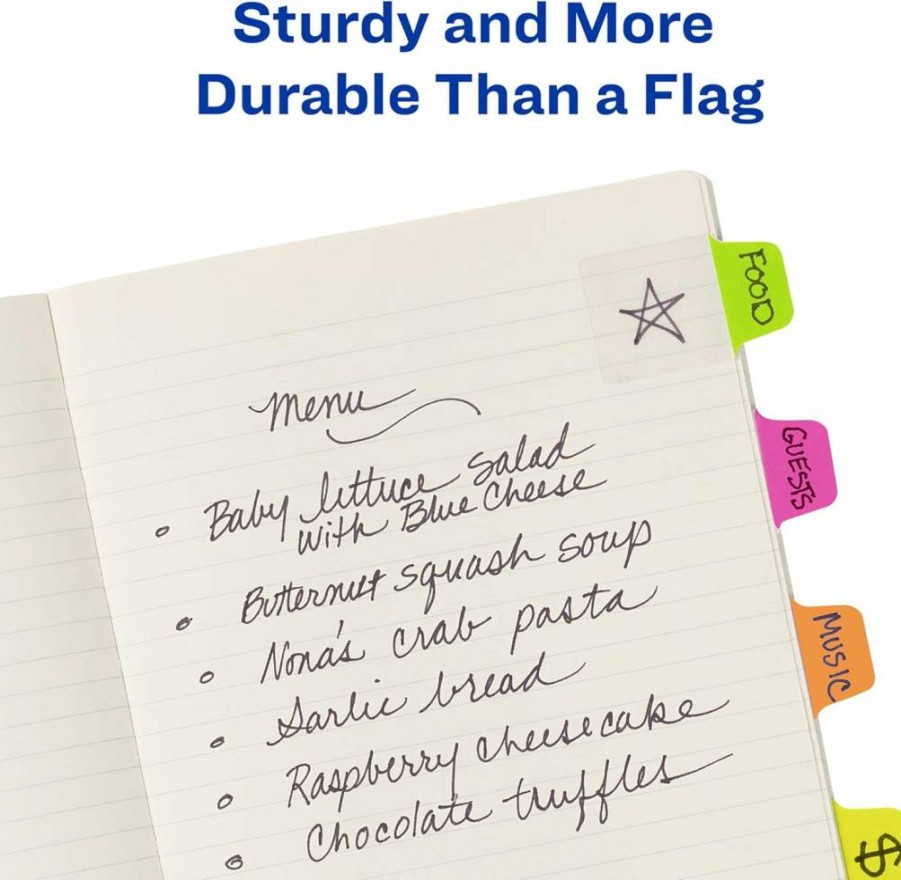 Sturdy and More
Durable Than a Flag
FOOD
Menu
GUESTS
Baby lettuce salad
with Blue Cheese
Butternut squash soup
Nona's crab pasta
MUSIC
Garlic bread
Raspberry cheesecake
Chocolate truffles
$